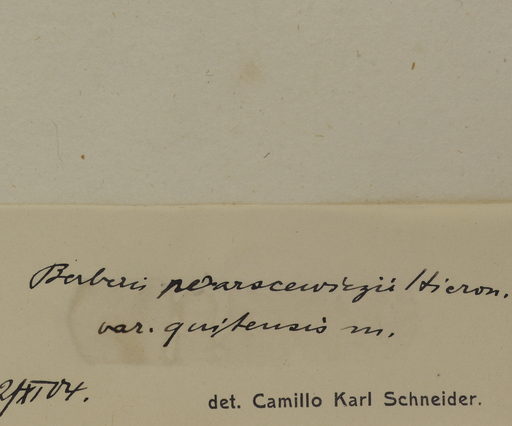 Berberis warscewiczii Hieron.
var. quitensis m.
2/XI 04.
det. Camillo Karl Schneider.